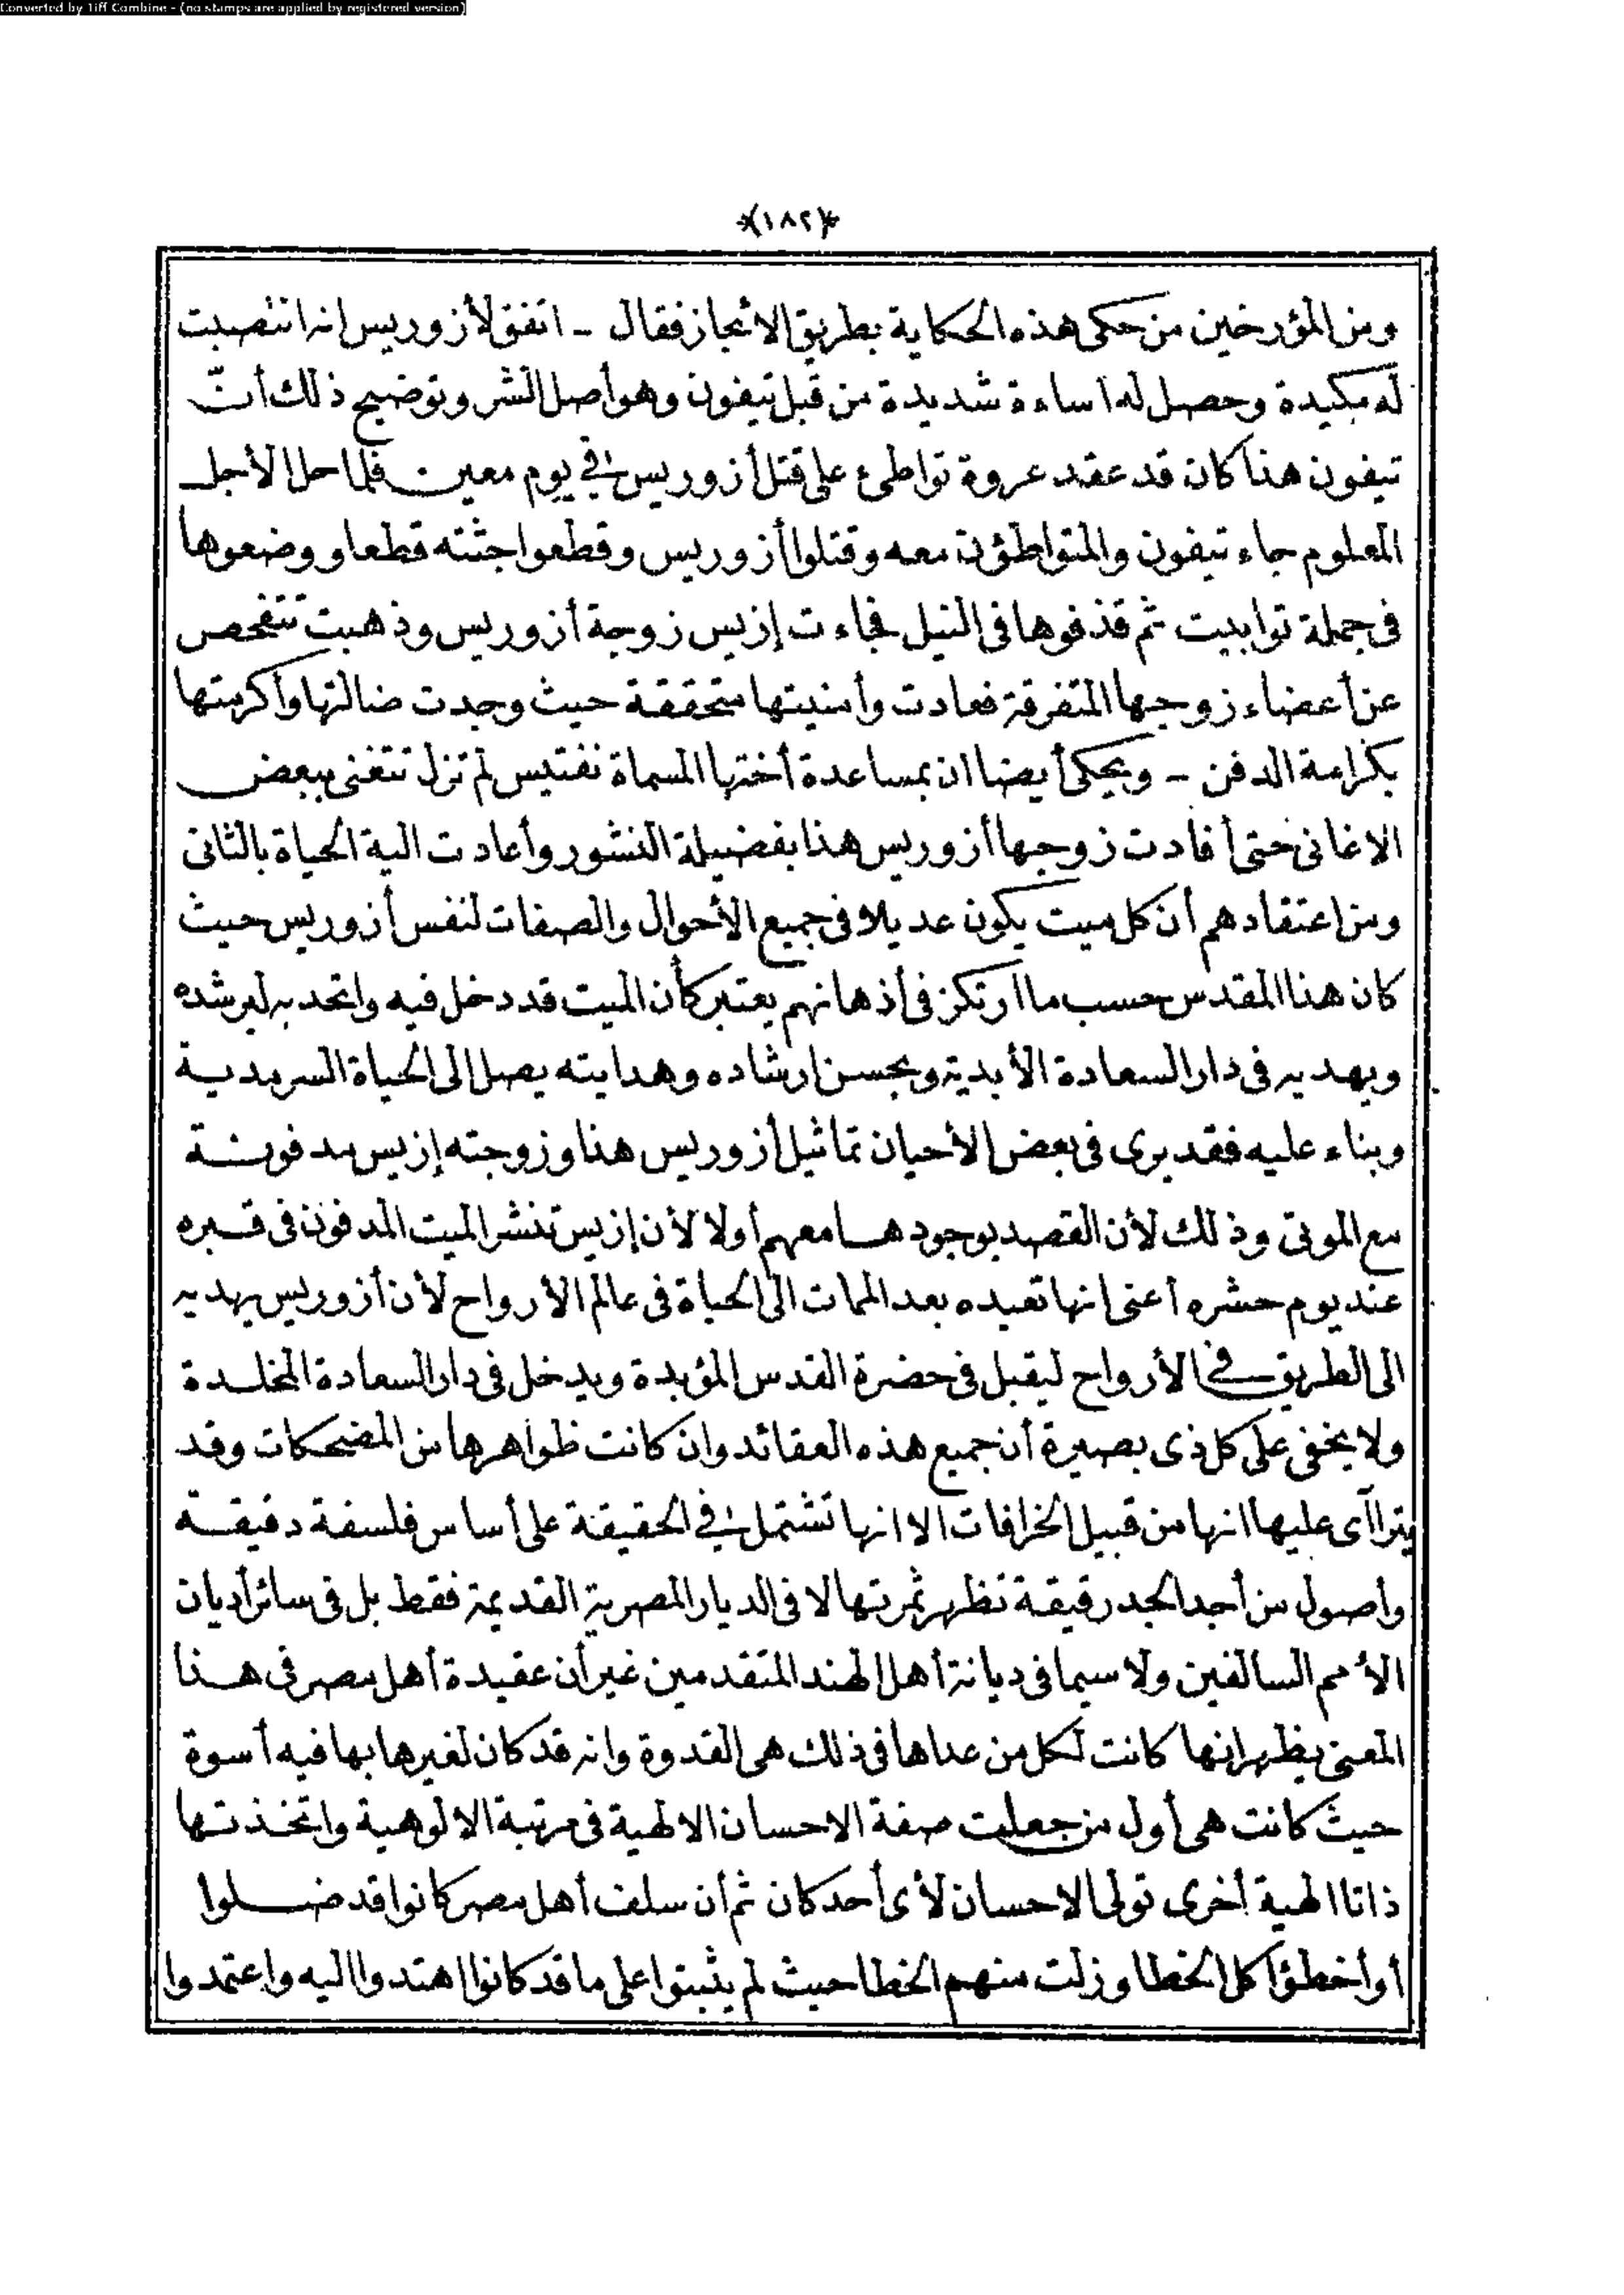 Converted by Tiff Combine - (no stamps are applied by registered version)
*(١٨٢)*
ومن المؤرخين من حكى هذه الحكاية بطريق الايجاز فقال - اتفق لأزوريس انه انتصبت
له مكيدة وحصل له اساءة شديدة من قبل تيفون وهو أصل الشر وتوضيح ذلك أنّ
تيفون هذا كان قد عقد عروة تواطئ على قتل أزوريس في يوم معين فلما حل الأجل
المعلوم جاء تيفون والمتواطؤن معه وقتلوا أزوريس وقطعوا جثته قطعا ووضعوها
فى جملة توابيت ثم قذفوها فى النيل فجاءت إزيس زوجة أزوريس وذهبت تتفحص
عن أعضاء زوجها المتفرقة فعادت وأمنيتها متحققة حيث وجدت ضالتها وأكرمتها
بكرامة الدفن - ويحكى أيضا ان بمساعدة أختها المسماة نفتيس لم تزل تتغنى ببعض
الاغانى حتى أفادت زوجها أزوريس هذا بفضيلة النشور وأعادت الية الحياة بالثانى
ومن اعتقادهم أن كل ميت يكون عديلا فى جميع الأحوال والصفات لنفس أزوريس حيث
كان هذا المقدس حسب ما ارتكز فى أذهانهم يعتبر كأن الميت قد دخل فيه واتحد به ليرشده
ويهديه فى دار السعادة الأبدية وبحسن ارشاده وهدايته يصل الى الحياة السرمدية
وبناء عليه فقد يرى فى بعض الأحيان تماثيل أزوريس هذا وزوجته إزيس مدفونة
مع الموتى وذلك لأن القصد بوجودها معهم أولا لأن إزيس تنشر الميت المدفون فى قبره
عند يوم حشره أعنى انها تعيده بعد الممات الى الحياة فى عالم الأرواح لأن أزوريس يهديه
الى الطريق في الأرواح ليقبل فى حضرة القدس المؤبدة ويدخل فى دار السعادة المخلدة
ولا يخفى على كل ذى بصيرة أن جميع هذه العقائد وان كانت ظواهرها من المضحكات وقد
يتراآى عليها انها من قبيل الخرافات الا انها تشتمل في الحقيقة على أساس فلسفة دقيقة
وأصول من أجد الجد رقيقة تظهر ثمرتها لا فى الديار المصرية القديمة فقط بل فى سائر أديان
الأمم السالفين ولا سيما فى ديانة أهل الهند المتقدمين غير أن عقيدة أهل مصر فى هذا
المعنى يظهر انها كانت لكل من عداها فى ذلك هى القدوة وانه قد كان لغيرها بها فيه أسوة
حيث كانت هى أول من جعلت صفة الاحسان الالهية فى مرتبة الالوهية واتخذتها
ذاتا الهية أخرى تولى الاحسان لأى أحد كان ثم أن سلف أهل مصر كانوا قد ضلوا
أو أخطؤا كل الخطا وزلت منهم الخطا حيث لم يثبتوا على ما قد كانوا اهتدوا اليه واعتمدوا